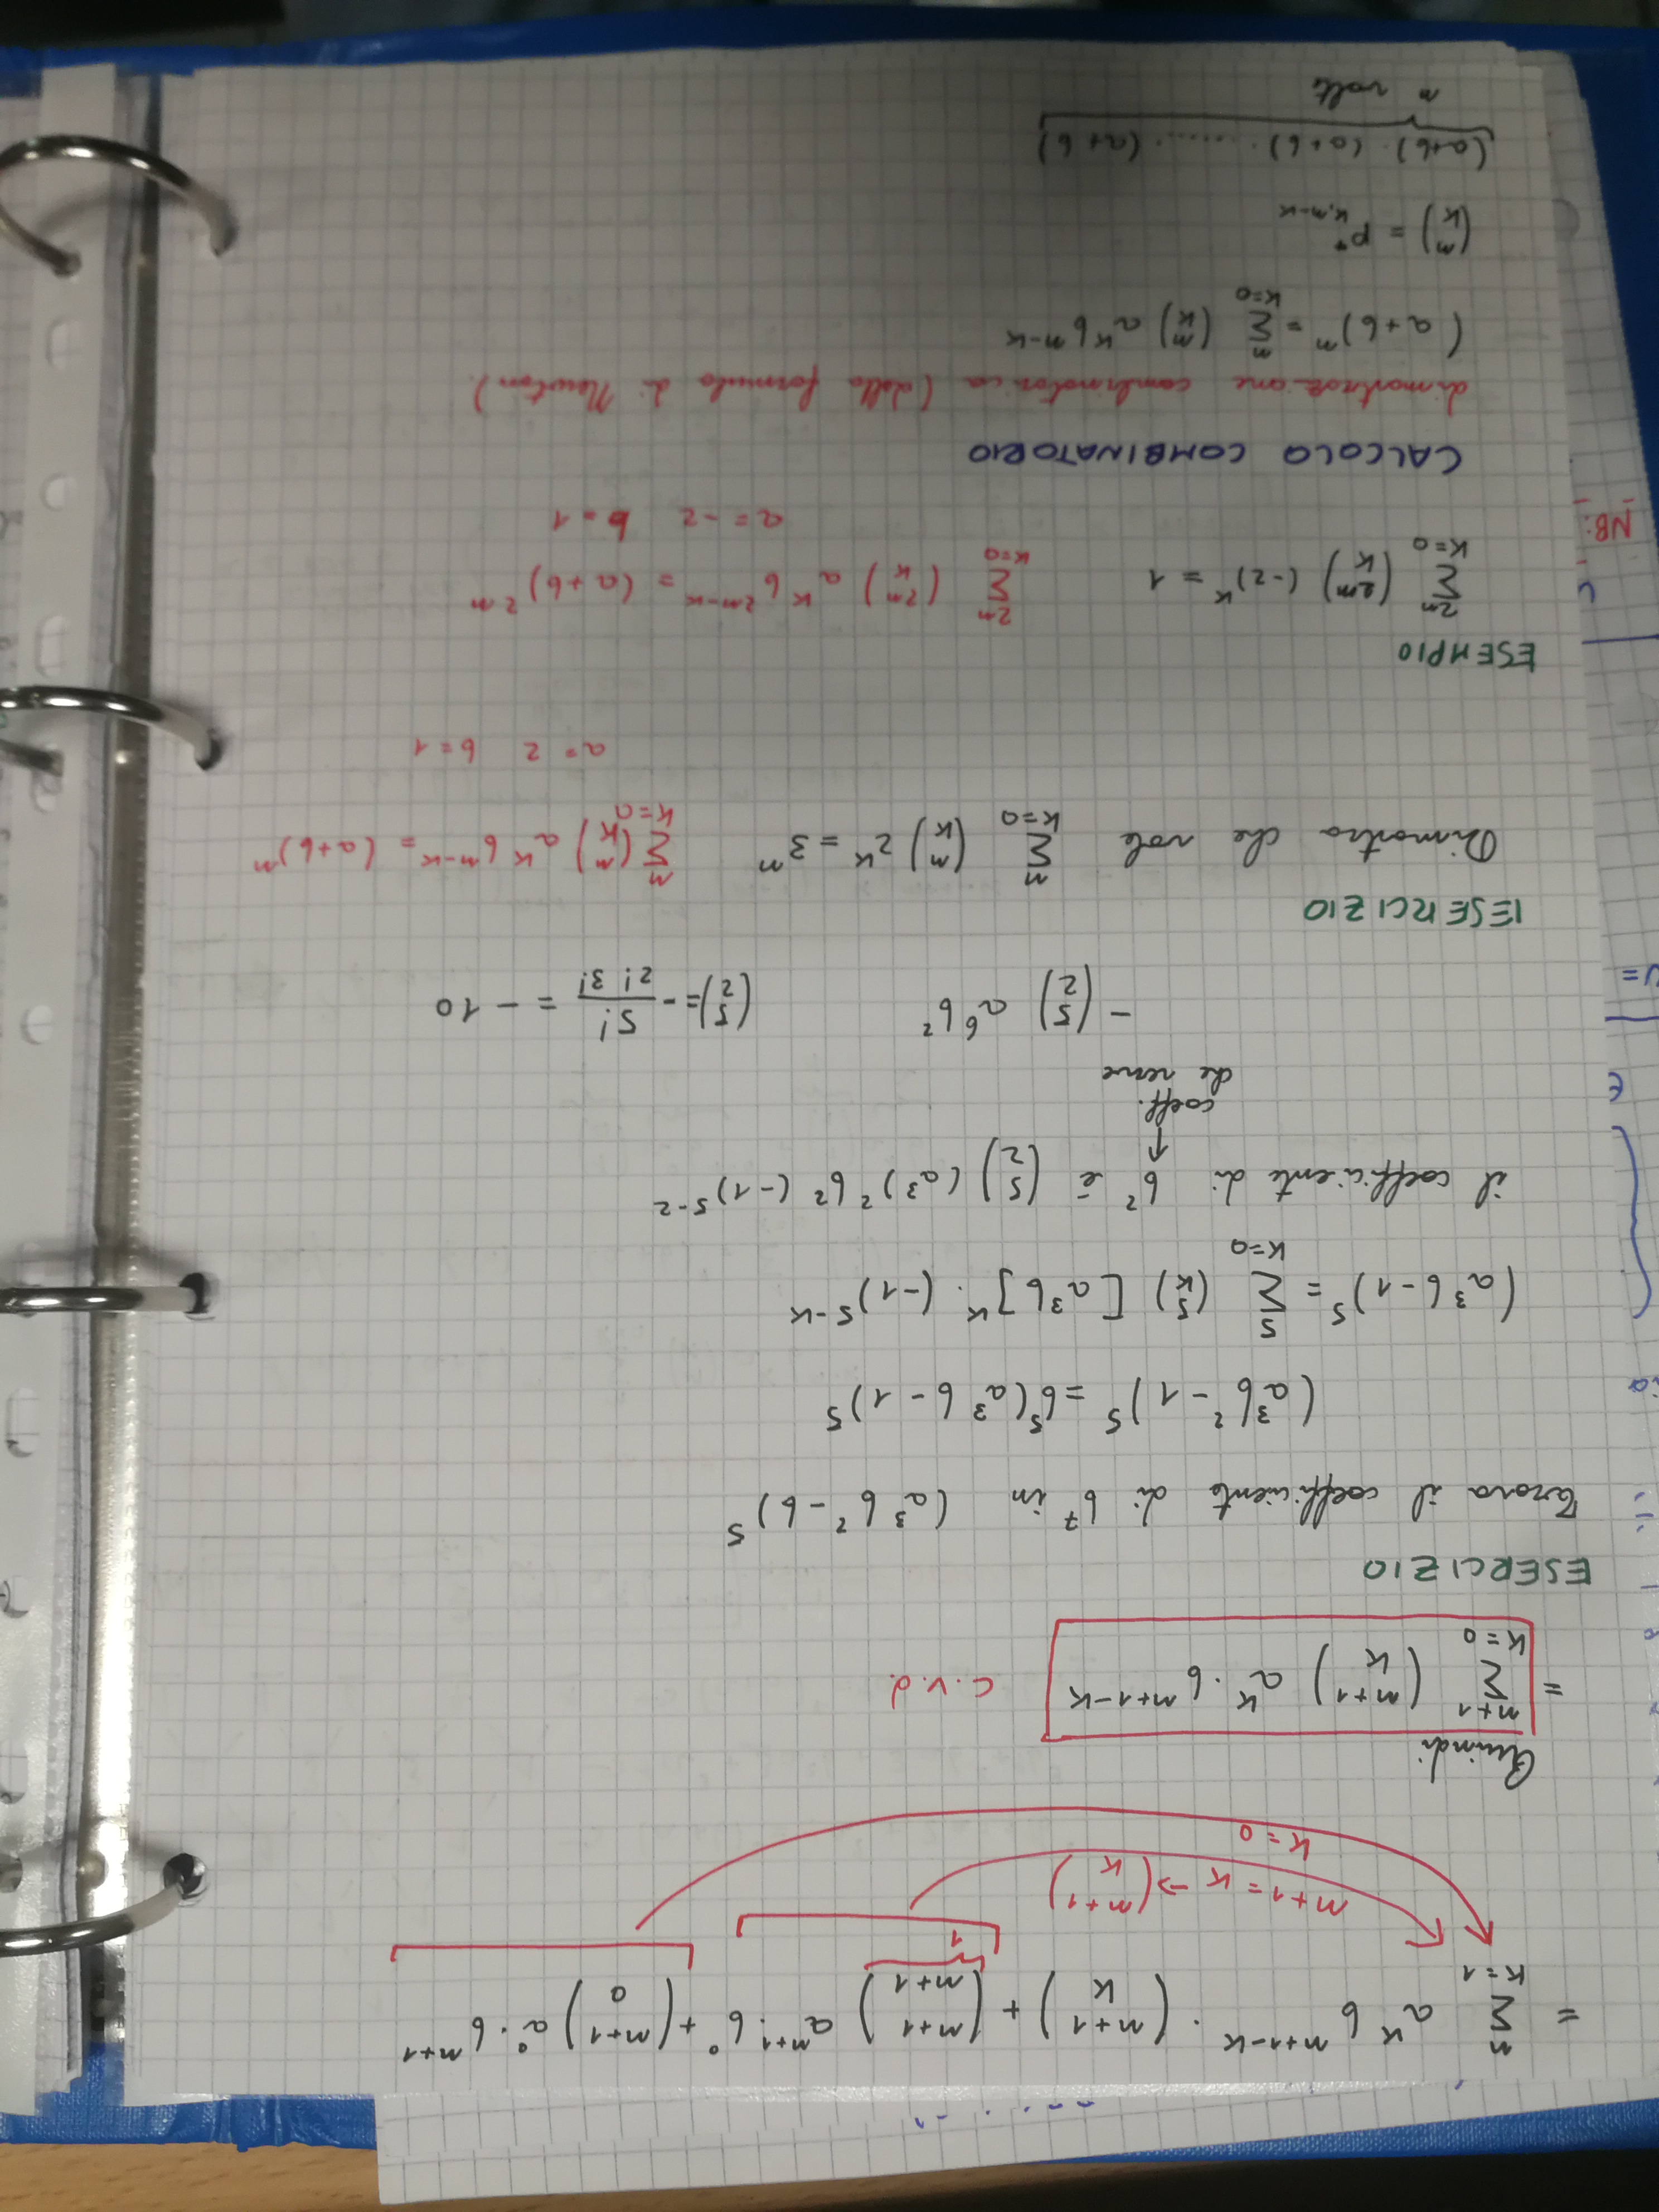 = Σ_{k=1}^{n} a^k b^{n+1-k} · (n+1 k) + (n+1 n+1) a^{n+1} · b^0 + (n+1 0) a^0 · b^{n+1}
1
n+1 = k → (n+1 k)
k = 0
Quindi
= Σ_{k=0}^{n+1} (n+1 k) a^k · b^{n+1-k} c.v.d.
ESERCIZIO
Trova il coefficiente di b^7 in (a^3 b^2 - b)^5
(a^3 b^2 - 1)^5 = b^5 (a^3 b - 1)^5
(a^3 b - 1)^5 = Σ_{k=0}^{5} (5 k) [a^3 b]^k · (-1)^{5-k}
il coefficiente di b^2 è (5 2) (a^3)^2 b^2 (-1)^{5-2}
↑
coeff.
che serve
- (5 2) a^6 b^2 (5 2) = - 5!/(2! 3!) = - 10
ESERCIZIO
Dimostra che vale Σ_{k=0}^{n} (n k) 2^k = 3^n Σ_{k=0}^{n} (n k) a^k b^{n-k} = (a+b)^n
a = 2 b = 1
ESEMPIO
Σ_{k=0}^{2n} (2n k) (-2)^k = 1 Σ_{k=0}^{2n} (2n k) a^k b^{2n-k} = (a+b)^{2n}
a = -2 b = 1
NB:
CALCOLO COMBINATORIO
dimostrazione combinatorica (della formula di Newton)
(a+b)^n = Σ_{k=0}^{n} (n k) a^k b^{n-k}
(n k) = P^*_{k,n-k}
(a+b) · (a+b) · ....... · (a+b)
n volte